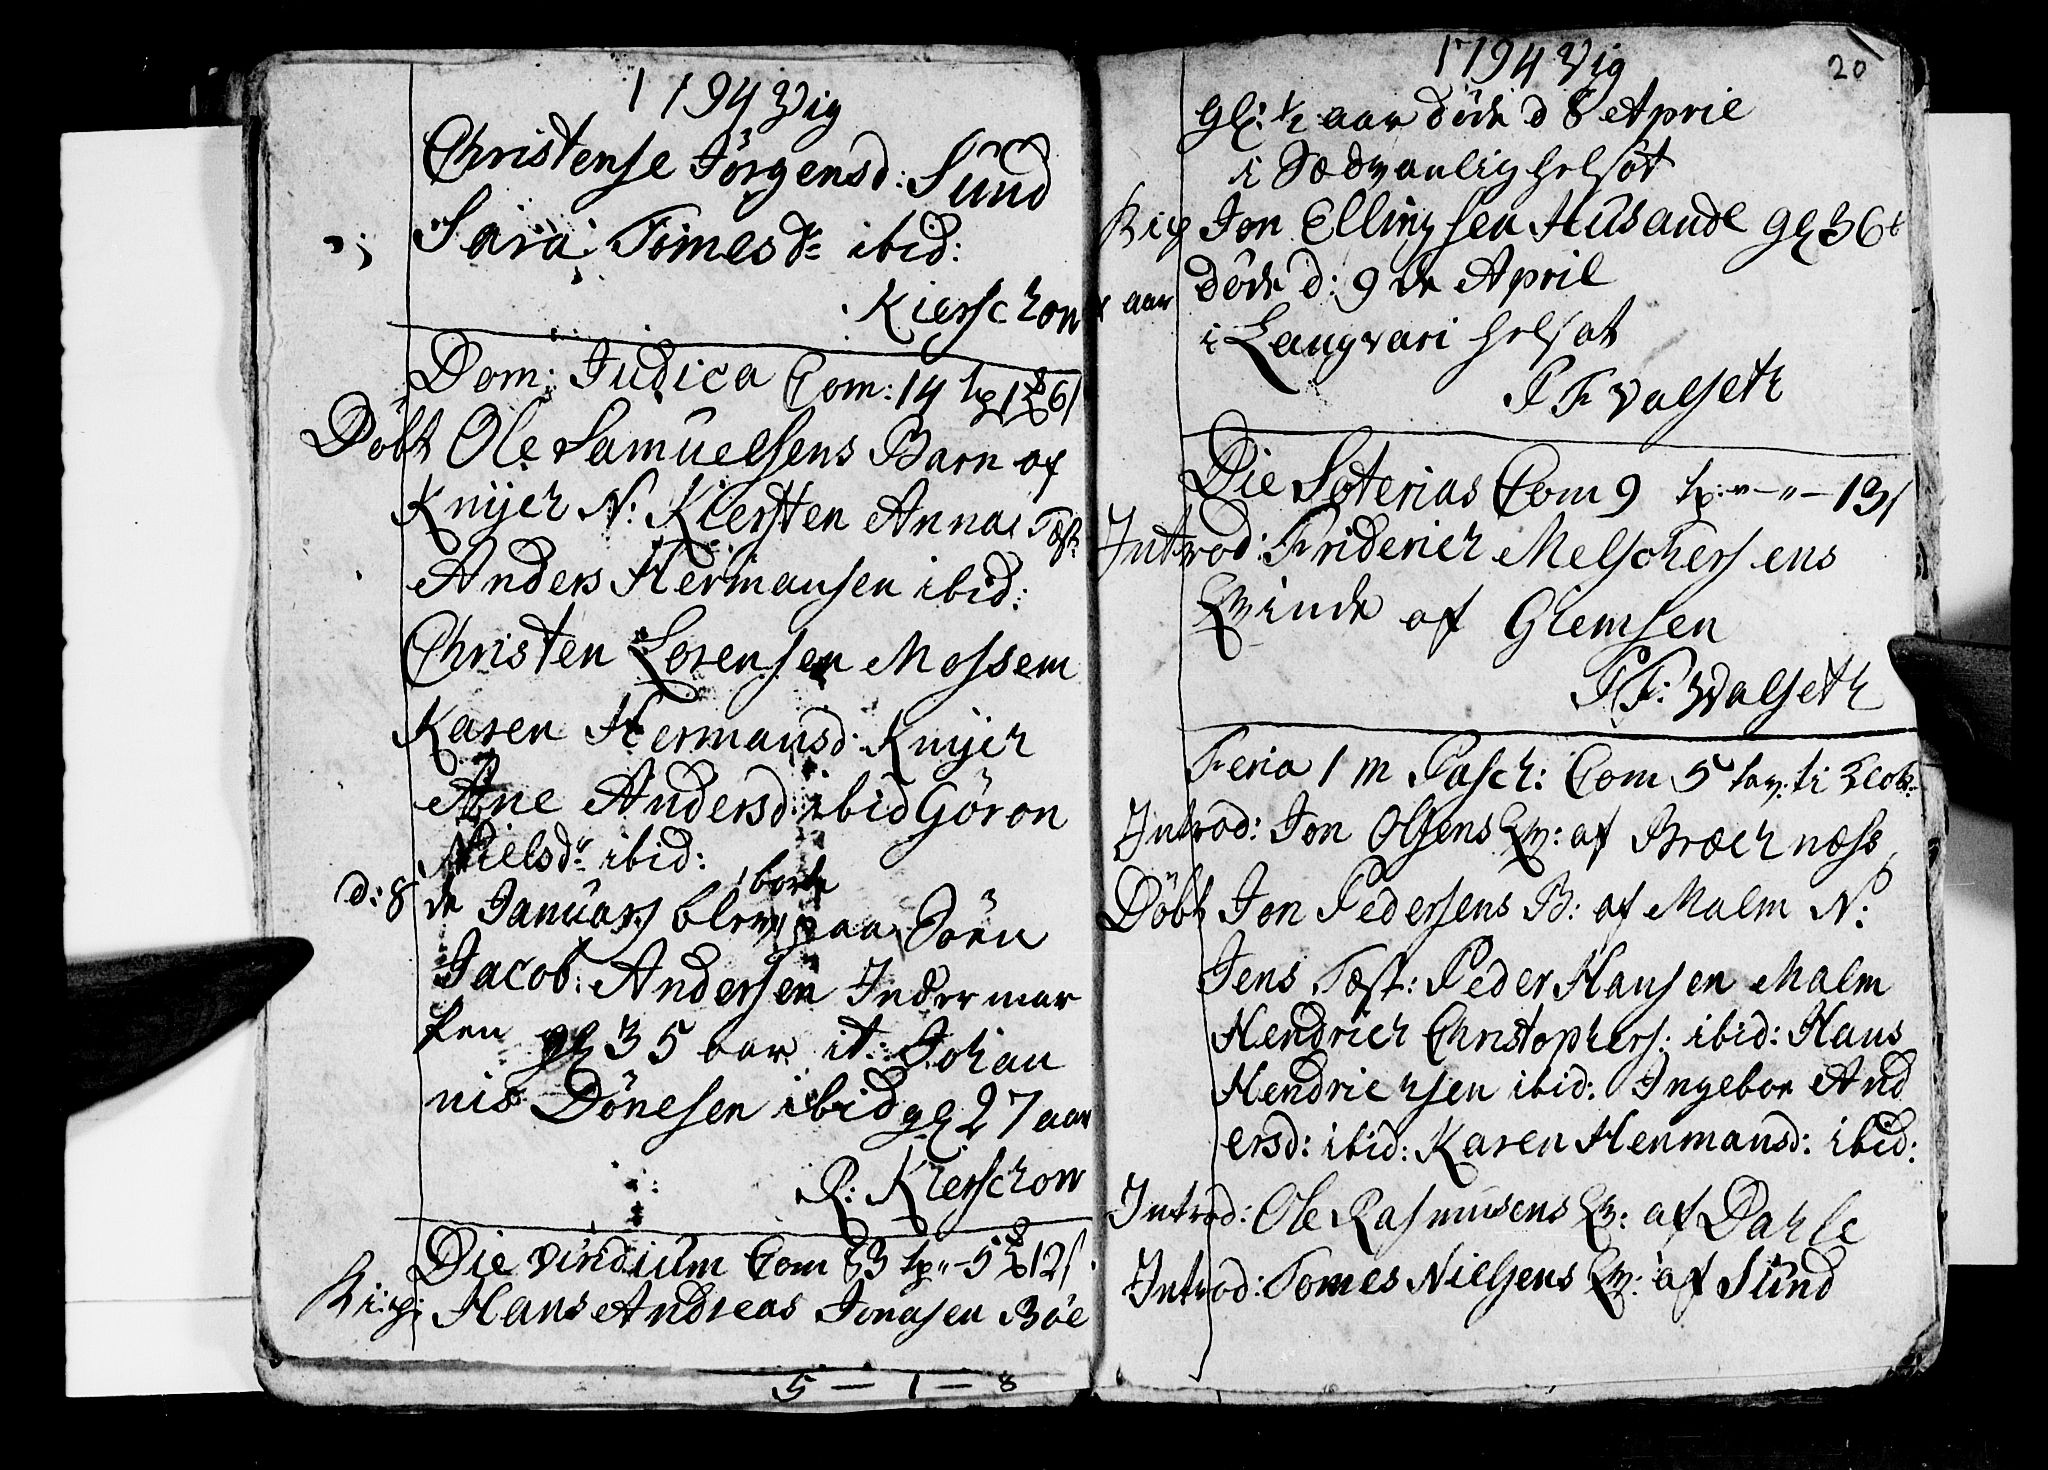 1794 Vig
Christense Jörgensd: Sünd
Sara Tomesdr ibid:
Kierschow
Dom: Judica Com: 14
Döbt Ole Samuelsens Barn af
Knÿch N: Kiersten Anna Test
Anders Hermansen ibid:
Christen Lorensen Mossem
Karen Hermansd: Knÿch
Ane Andersd: ibid Göron
Nielsdr ibid:
borte
d: 8 de Januarj blev paa Söen
Jacob Andersen Inder mar
ken gl 35 aar it: Johan
nis Dönesen ibid gl 27 aar
R: Kierschow
Die viridium Com 83
Hans Andreas Jonasen Böe
5 — 1 — 8
1794 Vig
20
gl: 1/2 aar döde d 8 April
i Sædvanlig helsöt
Jon Ellingsen Hüsande gl 36
aar döde d: 9 de April
i Langvari helsot
P F Valseth
Die Soterias Com 9
Introd: Friderich Melchersens
Qvinde af Glemsen
P F: Valseth
Feria 1 m Pasch: Com 5
Introd: Jon Olsens Qv: af Bræch næss
Döbt Jon Pedersens B: af Malm N:
Jens Test: Peder Hansen Malm
Hendrich Christophers: ibid: Hans
Hendrichsen ibid: Ingebor And
ersd: ibid: Karen Henmansd: ibid:
Introd: Ole Rasmusens Qv: af Dahle
Introd: Tomes Nielsens Qv: af Sünd